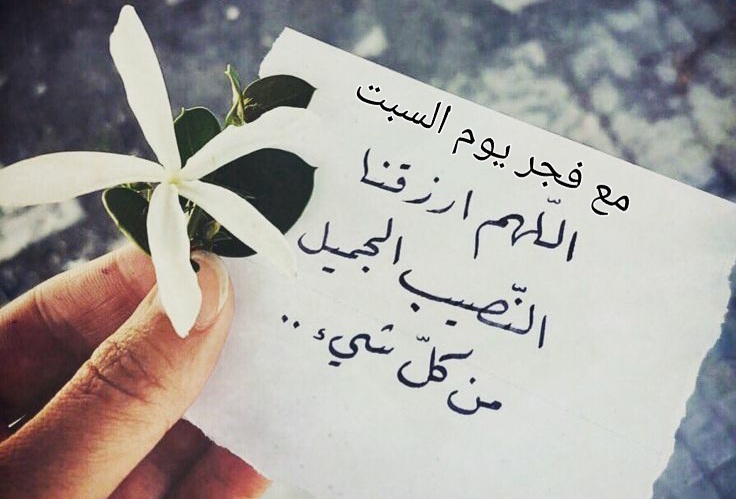 مع فجر يوم السبت
اللّهم ارزقنا
النّصيب الجميل
من كلّ شيء ..